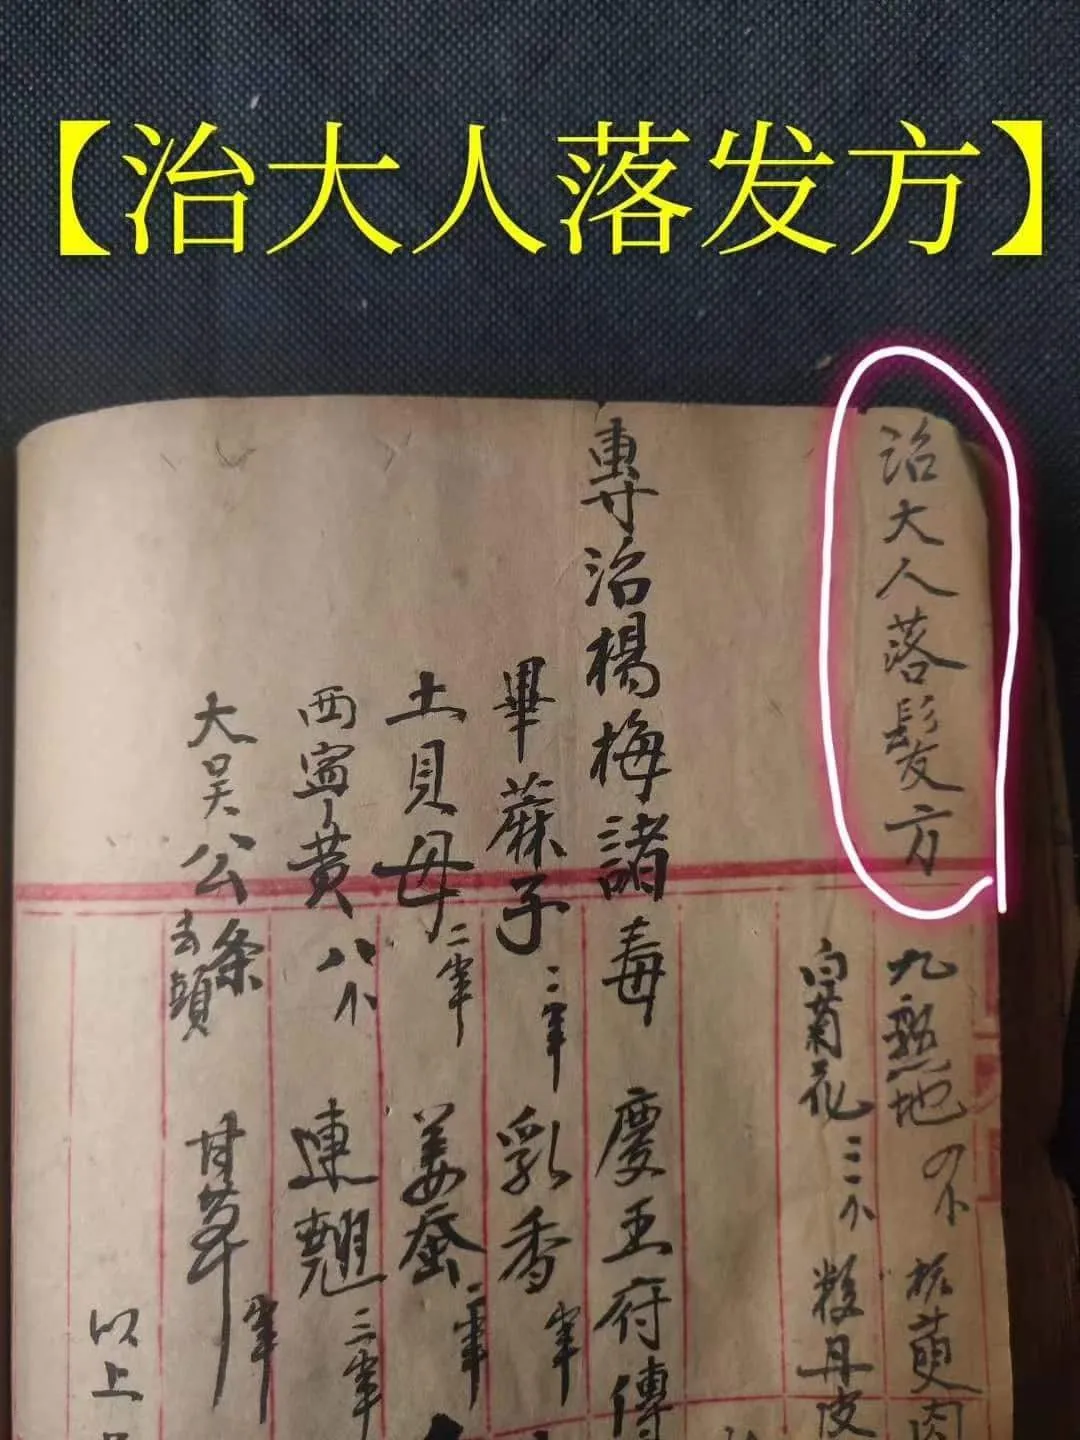 【治大人落发方】
治大人落髮方
九熟地 萸肉
白菊花 三 粉丹皮
專治楊梅諸毒 慶王府傳
蓽蔴子 二 乳香
土貝母 二 姜蚕
西寧黄 八个 連翹 三
大吴公 条 去頭 甘草
以上